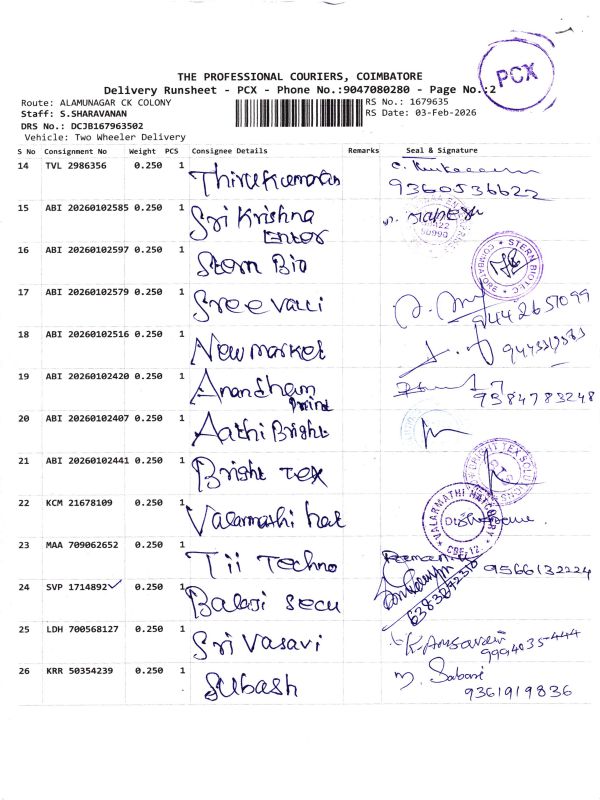 PCX
THE PROFESSIONAL COURIERS, COIMBATORE
Delivery Runsheet - PCX - Phone No.:9047080280 - Page No.:2
Route: ALAMUNAGAR CK COLONY
RS No.: 1679635
Staff: S.SHARAVANAN
RS Date: 03-Feb-2026
DRS No.: DCJB167963502
Vehicle: Two Wheeler Delivery
S No Consignment No Weight PCS Consignee Details Remarks Seal & Signature
14 TVL 2986356 0.250 1 Thirukumaran
9360536622
15 ABI 20260102585 0.250 1 Sri Krishna
Enter
16 ABI 20260102597 0.250 1 Stern Bio STERN BIOTEC
17 ABI 20260102579 0.250 1 Sree valli
9442651099
18 ABI 20260102516 0.250 1 New market
19 ABI 20260102420 0.250 1 Anandham
Print
9384783248
20 ABI 20260102407 0.250 1 Aathi Bright
21 ABI 20260102441 0.250 1 Bright Tex
22 KCM 21678109 0.250 1 Valarmathi hat VALARMATHI HATCHERY CBE-12.
23 MAA 709062652 0.250 1 Tii Techno
9566132224
24 SVP 1714892 0.250 1 Balaji Secu
25 LDH 700568127 0.250 1 Sri Vasavi
9994035444
26 KRR 50354239 0.250 1 Subash M. Sabari
9361919836